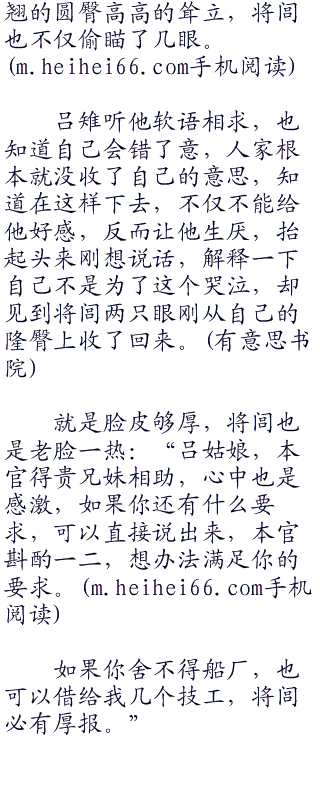 翘的圆臀高高的耸立，将闾
也不仅偷瞄了几眼。
(m.heihei66.com手机阅读)
吕雉听他软语相求，也
知道自己会错了意，人家根
本就没收了自己的意思，知
道在这样下去，不仅不能给
他好感，反而让他生厌，抬
起头来刚想说话，解释一下
自己不是为了这个哭泣，却
见到将闾两只眼刚从自己的
隆臀上收了回来。(有意思书
院)
就是脸皮够厚，将闾也
是老脸一热：“吕姑娘，本
官得贵兄妹相助，心中也是
感激，如果你还有什么要
求，可以直接说出来，本官
斟酌一二，想办法满足你的
要求。(m.heihei66.com手机
阅读)
如果你舍不得船厂，也
可以借给我几个技工，将闾
必有厚报。”